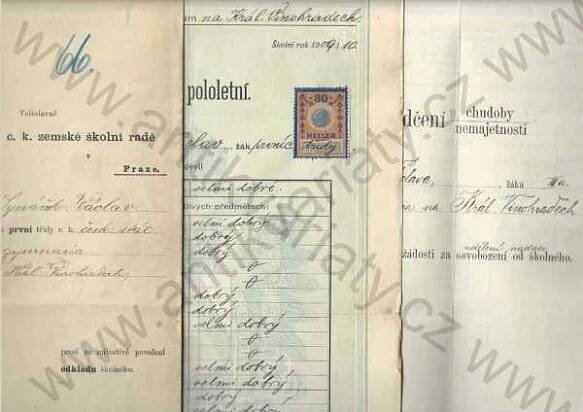 66.
Veleslavné
c. k. zemské školní radě
v
Praze.
Václav
první třídy c. k. české stát.
gymnasia
Král. Vinohradech
prosí za milostivé povolení
odkladu školného.
na Král. Vinohradech.
Školní rok 1909/10
pololetní.
30
HELLER
žák první
třídy
velmi dobré.
divých předmětech:
velmi dobrý
dobrý
dobrý
0
0
dobrý
dobrý
velmi dobrý
0
0
dobrý
velmi dobrý
dobrý
dobrý
velmi dobrý
dčení chudoby
nemajetnosti
žáka
na Král. Vinohradech
žádosti za osvobození od školného.
www.antikvariaty.cz